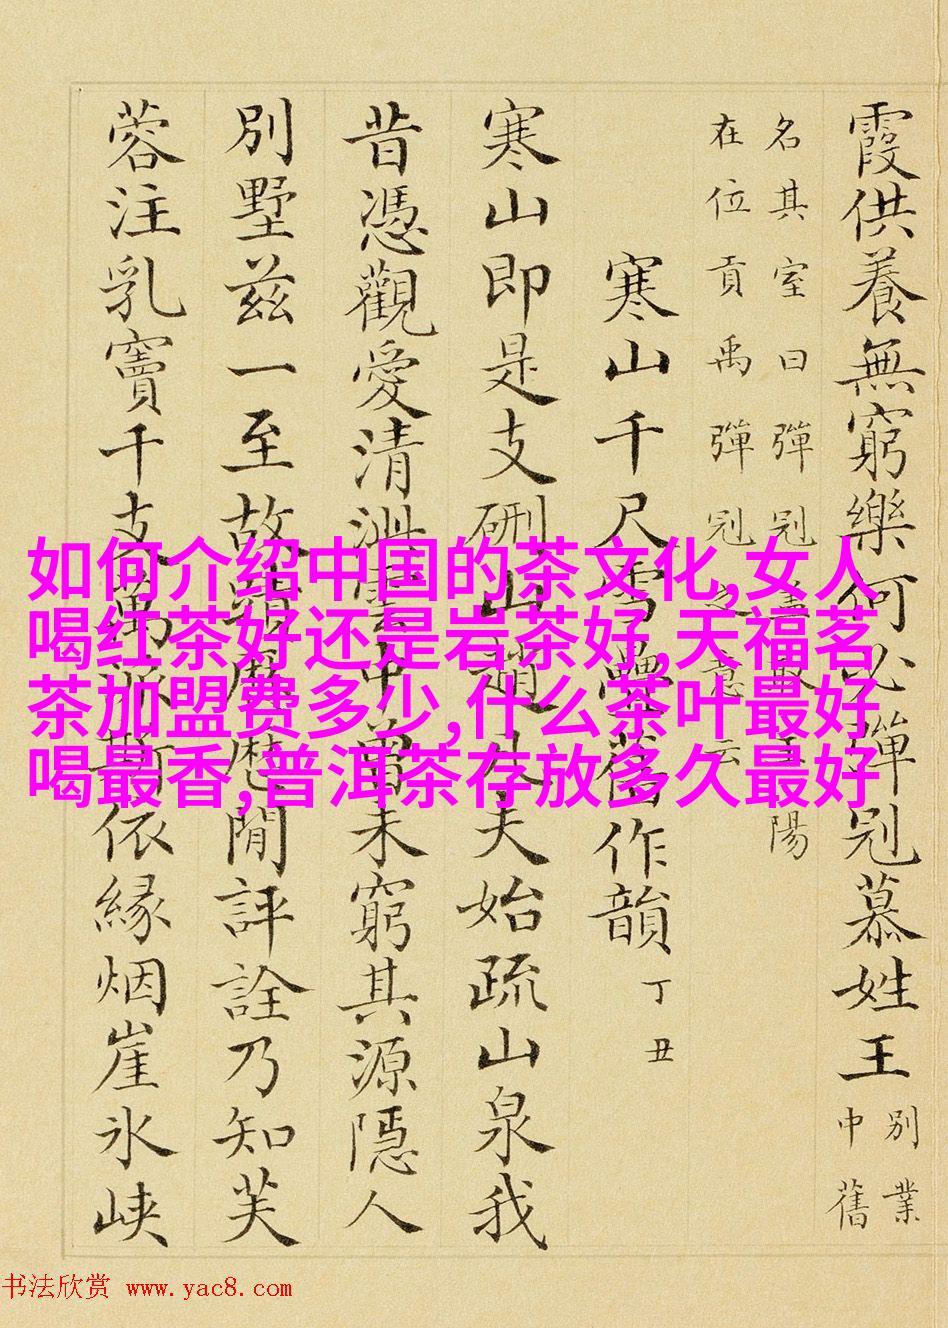 霞供養無窮樂何必彈冠慕姓王
別業
中舊
名其室曰彈冠蓋取王陽
在位貢禹彈冠之意云
寒山千尺雪疊舊作韻
丁丑
寒山即是支硎山趙凡夫始疏山泉我
昔憑觀愛清泚雲中曽未窮其源隱人
別墅茲一至故蹟歷歷閒評詮乃知芙
蓉注乳竇千支萬派斯依緣烟崖氷峽
如何介绍中国的茶文化,女人
喝红茶好还是岩茶好,天福茗
茶加盟费多少,什么茶叶最好
喝最香,普洱茶存放多久最好
书法欣赏 www.yac8.com